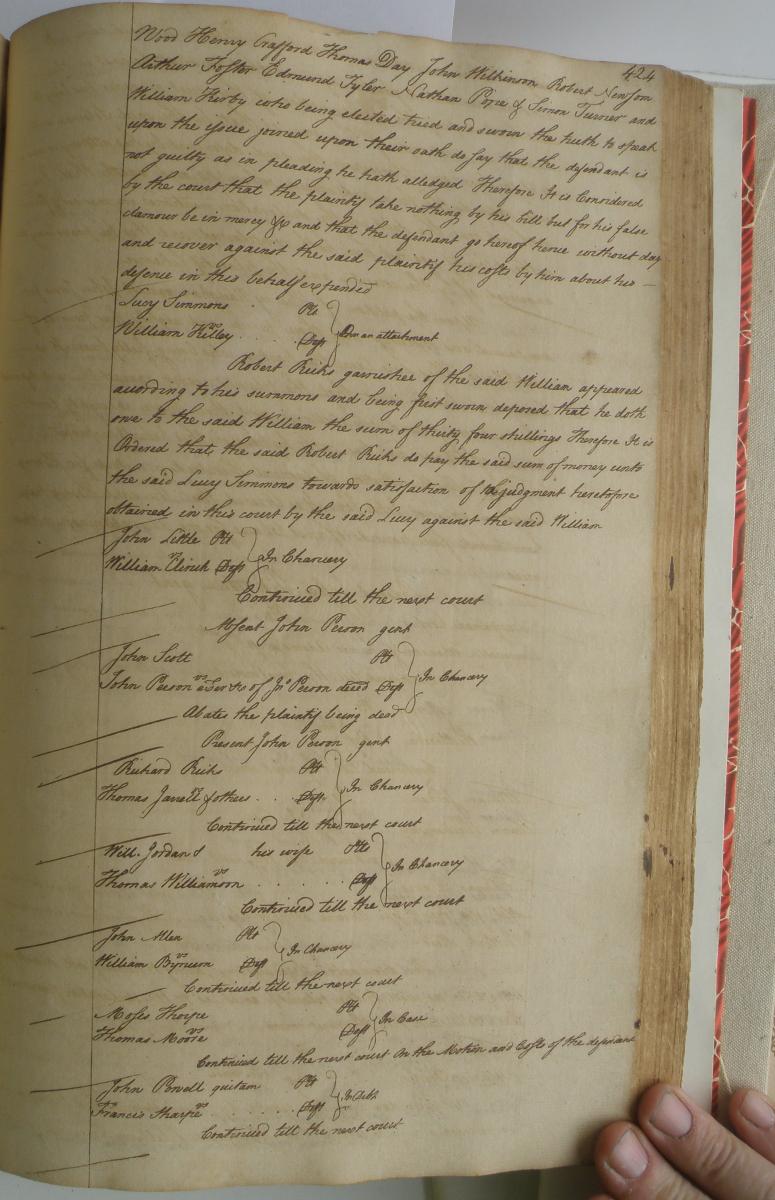 424
Wood Henry Crafford Thomas Day John Wilkinson Robert Newsom
Arthur Foster Edmund Tyler Nathan Pope & Simon Turner and
William Kirby who being elected tried and sworn the truth to speak
upon the issue joined upon their oath do say that the defendant is
not guilty as in pleading he hath alledged Therefore It is Considered
by the court that the plaintif take nothing by his bill but for his false
clamour be in mercy &c and that the defendant go hereof hence without day
and recover against the said plaintif his costs by him about his
defence in this behalf expended
Lucy Simmons Plt
vs
William Kelley Deft On an attachment
Robert Ricks garnishee of the said William appeared
according to his summons and being first sworn deposed that he doth
owe to the said William the sum of thirty four shillings Therefore It is
Ordered that the said Robert Ricks do pay the said sum of money unto
the said Lucy Simmons towards satisfaction of the judgment heretofore
obtained in this court by the said Lucy against the said William
John Little Plt
vs
William Deft In Chancery
Continued till the next court
Absent John Person gent
John Scott Plt
vs
John Person of Jno Person decd Deft In Chancery
Abates the plaintif being dead
Present John Person gent
Richard Ricks Plt
vs
Thomas Jarrell & others Deft In Chancery
Continued till the next court
Will. Jordan & his wife Plts
vs
Thomas Williamson Deft In Chancery
Continued till the next court
John Allen Plt
vs
William Bynum Deft In Chancery
Continued till the next court
Moses Thorpe Plt
vs
Thomas Moore Deft In Case
Continued till the next court On the Motion and Costs of the defendant
John Powell quitam Plt
vs
Francis Sharpe Deft In Debt
Continued till the next court